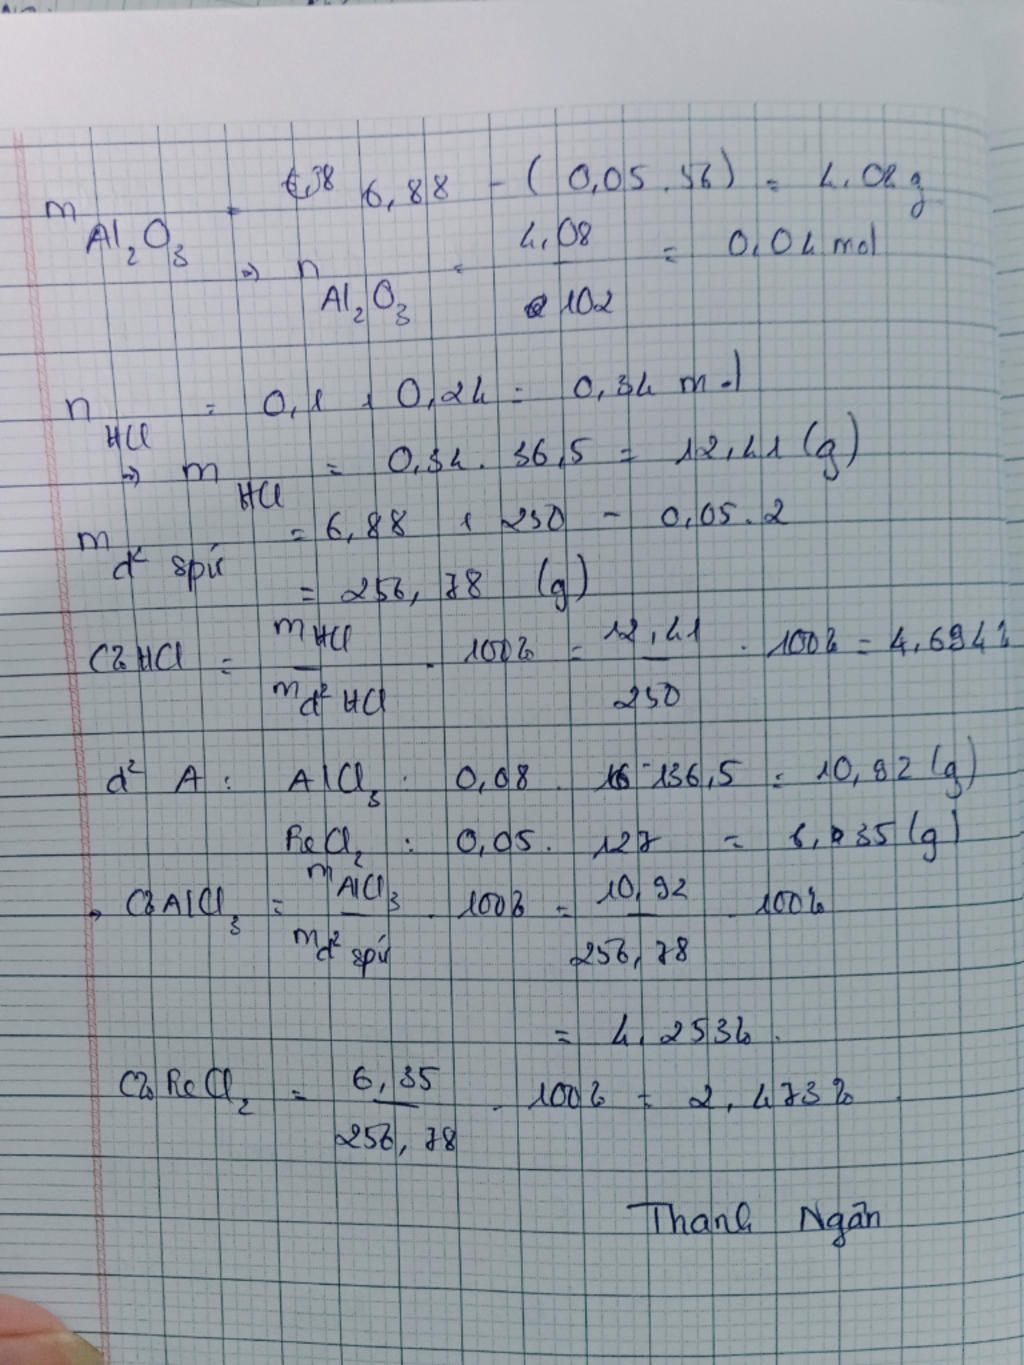 m Al₂O₃ = 6,88 - (0,05.56) = 4,08 g
=> n Al₂O₃ = 4,08 / 102 = 0,04 mol
n HCl = 0,1 + 0,24 = 0,34 mol
=> m HCl = 0,34. 36,5 = 12,41 (g)
m d² spứ = 6,88 + 250 - 0,05.2
= 256,78 (g)
C% HCl = m HCl / m d² HCl . 100% = 12,41 / 250 . 100% = 4,694%
d² A : AlCl₃ : 0,08. 136,5 = 10,92 (g)
FeCl₂ : 0,05. 127 = 6,35 (g)
→ C% AlCl₃ = m AlCl₃ / m d² spứ . 100% = 10,92 / 256,78 . 100%
= 4,253%.
C% FeCl₂ = 6,35 / 256,78 . 100% = 2,473%
Thanh Ngân